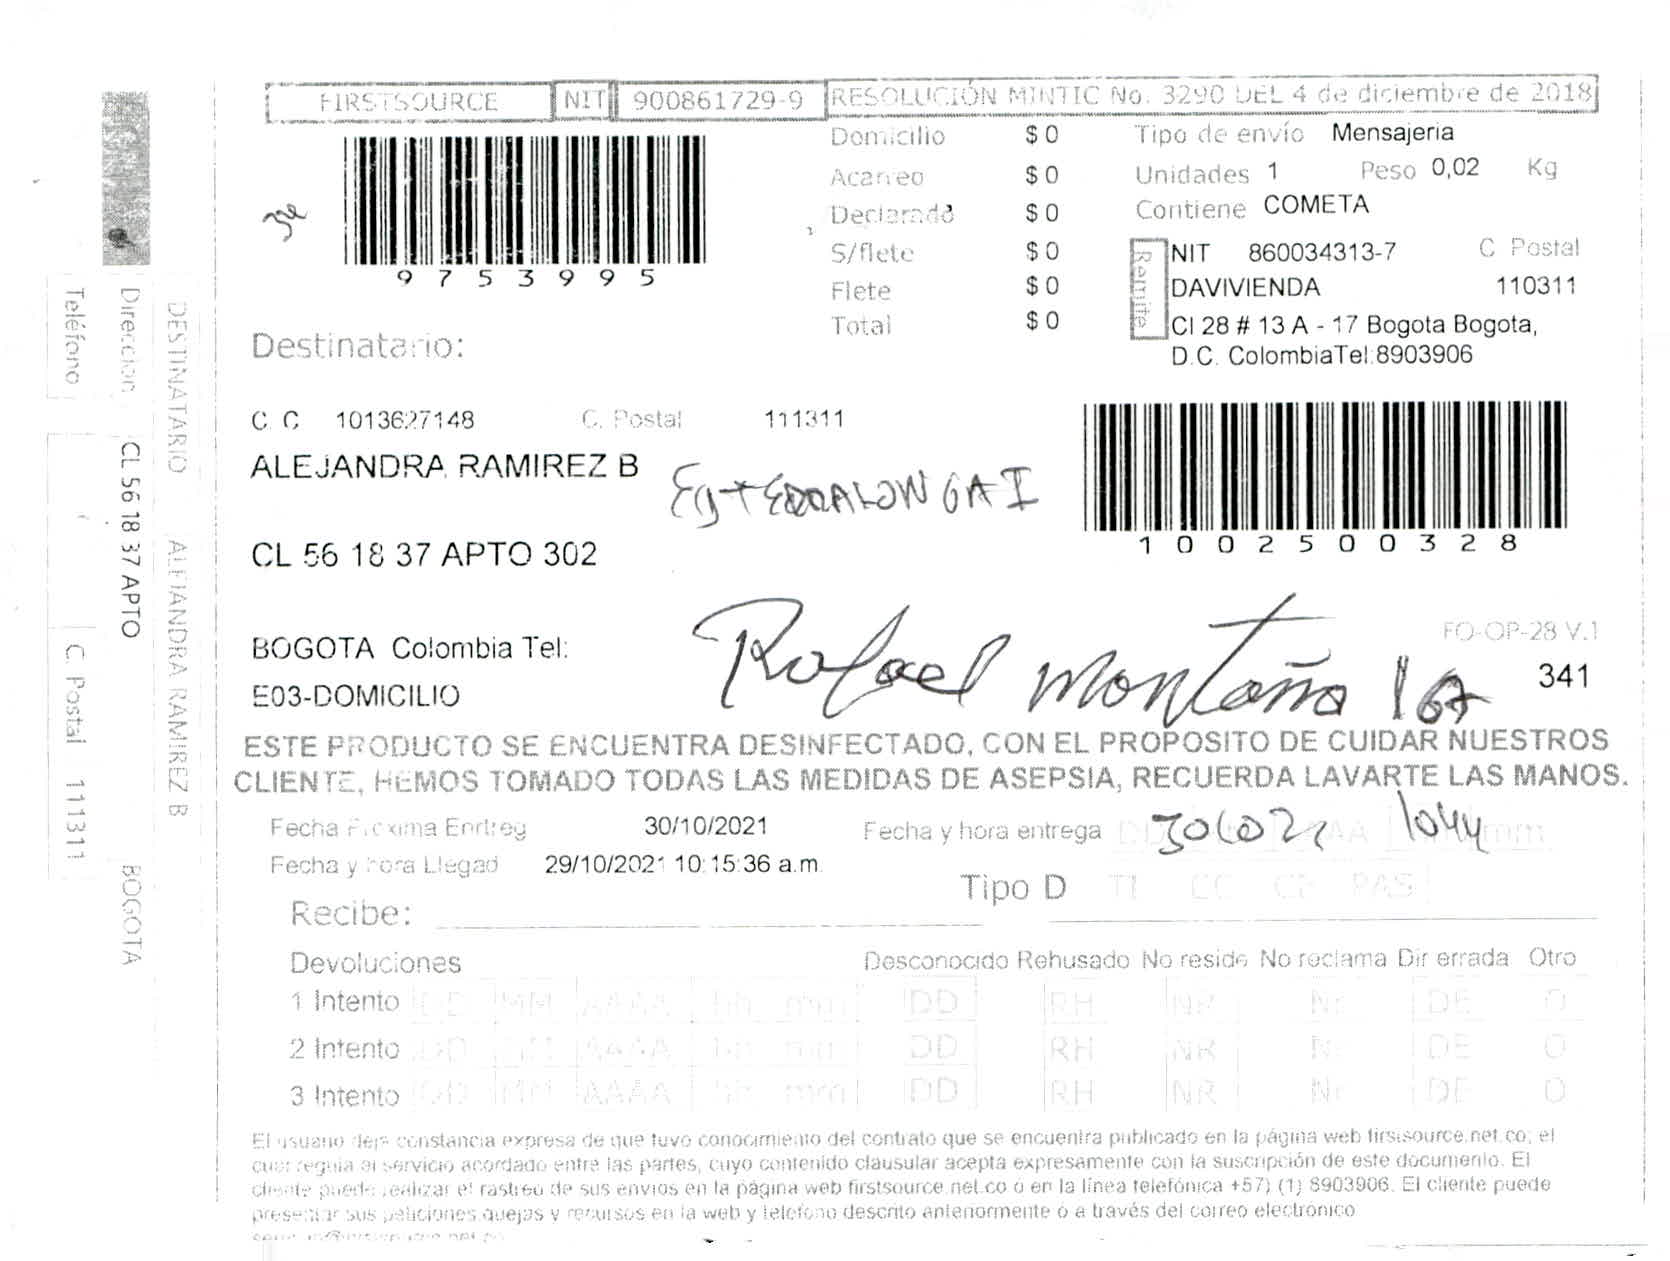 FIRSTSOURCE NIT 900861729-9 RESOLUCIÓN MINTIC No. 3290 DEL 4 de diciembre de 2018
Domicilio $ 0 Tipo de envío Mensajeria
Acarreo $ 0 Unidades 1 Peso 0,02 Kg
Declarado $ 0 Contiene COMETA
9 7 5 3 9 9 5
S/flete $ 0
Flete $ 0
Total $ 0
Remite
NIT 860034313-7 C Postal
DAVIVIENDA 110311
Cl 28 # 13 A - 17 Bogota Bogota,
D.C. ColombiaTel:8903906
Destinatario:
C C 1013627148 C. Postal 111311
ALEJANDRA RAMIREZ B
1 0 0 2 5 0 0 3 2 8
CL 56 18 37 APTO 302
BOGOTA Colombia Tel:
E03-DOMICILIO
Rafael Montaña
FO-OP-28 V.1
341
ESTE PRODUCTO SE ENCUENTRA DESINFECTADO, CON EL PROPOSITO DE CUIDAR NUESTROS
CLIENTE, HEMOS TOMADO TODAS LAS MEDIDAS DE ASEPSIA, RECUERDA LAVARTE LAS MANOS.
Fecha Proxima Entreg 30/10/2021 Fecha y hora entrega 1044
Fecha y hora Llegad 29/10/2021 10:15:36 a.m.
Tipo D TI CC CE PAS
Recibe:
Devoluciones Desconocido Rehusado No reside No reclama Dir errada Otro
1 Intento DD MM AAAA hh mm DD RH NR Nr DE O
2 Intento DD MM AAAA hh mm DD RH NR Nr DE O
3 Intento DD MM AAAA hh mm DD RH NR Nr DE O
El usuario deja constancia expresa de que tuvo conocimiento del contrato que se encuentra publicado en la página web firstsource.net.co; el
cual regula el servicio acordado entre las partes, cuyo contenido clausular acepta expresamente con la suscripción de este documento. El
cliente puede realizar el rastreo de sus envios en la página web firstsource.net.co o en la línea telefónica +57) (1) 8903906. El cliente puede
presentar sus peticiones,quejas y recursos en la web y telefono descrito anteriormente o a través del correo electronico
DESTINATARIO ALEJANDRA RAMIREZ B
Direccion CL 56 18 37 APTO BOGOTA
Teléfono C. Postal 111311